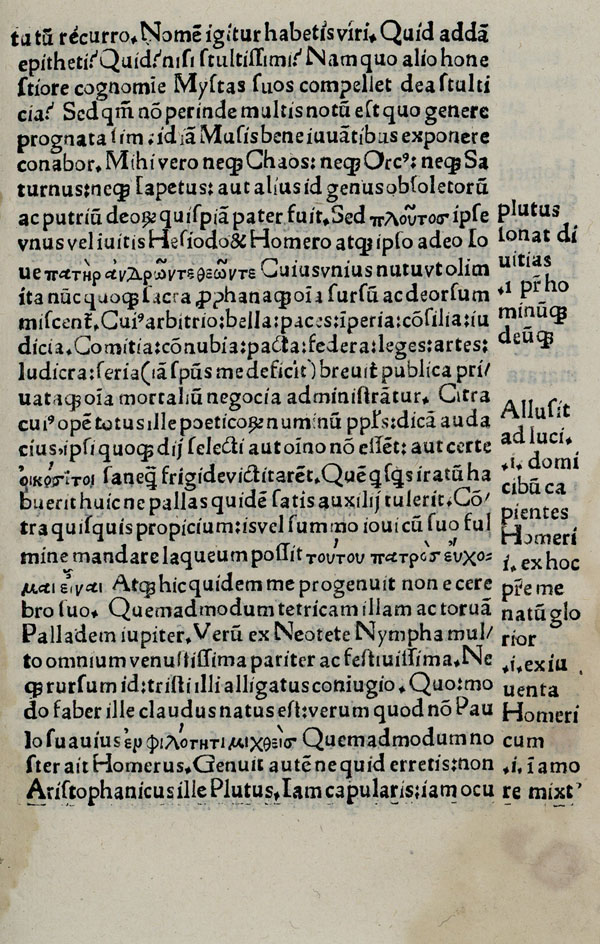 tutū recurro. Nomē igitur habetis viri. Quid addā
epitheti? Quid? nisi stultissimi? Nam quo alio hone
stiore cognomīe Mystas suos compellet dea stulti
cia? Sed qm̄ nō perinde multis notū est quo genere
prognata sim: id iā Musis bene iuuātibus exponere
conabor. Mihi vero neqꝫ Chaos: neqꝫ Orcꝰ: neqꝫ Sa
turnus: neqꝫ Iapetus: aut alius id genus obsoletorū
ac putriū deoꝝ quispiā pater fuit. Sed πλοῦτοσ ipse
vnus vel iuitis Hesiodo & Homero atqꝫ ipso adeo Io
ue πατὴρ ανδρῶντε θεῶντε Cuius vnius nutu vt olim
ita nūc quoqꝫ sacra ꝓphanaqꝫ oīa sursū ac deorsum
miscent̄. Cuiꝰ arbitrio: bella: paces: īperia: cōsilia: iu
dicia. Comitia: cōnubia: pacta: federa: leges: artes:
ludicra: seria (iā spūs me deficit) breuit publica pri/
uataqꝫ oīa mortaliū negocia administrātur. Citra
cuiꝰ opē totus ille poeticoꝝ numinū ppl̄s: dicā auda
cius. ipsi quoqꝫ dij selecti aut oīno nō essēt: aut certe
οἰκόσιτοι saneq̄ frigide victitarēt. Quē q̄sq̄s iratū ha
buerit huic ne pallas quidē satis auxilij tulerit. Cō/
tra quisquis propicium: is vel summo ioui cū suo ful
mine mandare laqueum possit τούτου πατρὸσ ἐύχο-
μαι εἶναι Atqꝫ hic quidem me progenuit non e cere
bro suo. Quemadmodum tetricam illam ac toruā
Palladem iupiter. Verū ex Neotete Nympha mul/
to omnium venustissima pariter ac festiuissima. Ne
qꝫ rursum id: tristi illi alligatus coniugio. Quo: mo
do faber ille claudus natus est: verum quod nō Pau
lo suauius ἐρ φιλότητι μιχθεὶσ Quemadmodum no
ster ait Homerus. Genuit autē ne quid erretis: non
Aristophanicus ille Plutus. Iam capularis: iam ocu
plutus
sonat di
uitias
.i pr̄ ho
minūqꝫ
deūqꝫ
Allusit
ad luci.
.i. domi
cibū ca
pientes
Homeri
i. ex hoc
pr̄e me
natū glo
rior
.i. ex iu
uenta
Homeri
cum
.i. ī amo
re mixtꝰ